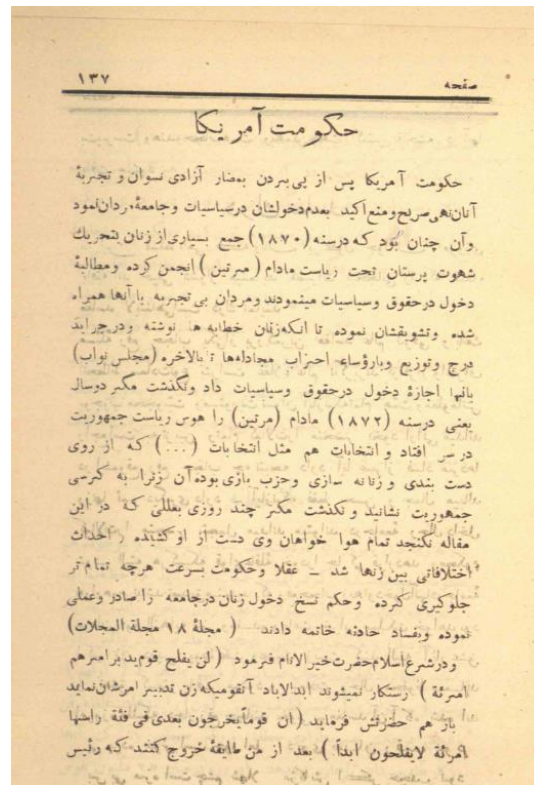 صفحه ۱۳۷
حکومت آمریکا
حکومت آمریکا پس از پی بردن بمضار آزادی نسوان و تجربهٔ
آنان نهی صریح و منع اکید بعدم دخولشان در سیاسیات و جامعهٔ مردان نمود
و آن چنان بود که در سنه (۱۸۷۰) جمع بسیاری از زنان بتحریك
شهوت پرستان تحت ریاست مادام (مرتین) انجمن کرده و مطالبهٔ
دخول در حقوق و سیاسیات مینمودند و مردان بی تجربه با آنها همراه
شده وتشویقشان نموده تا آنکه زنان خطابه ها نوشته ودر جراید
درج وتوزیع وبارؤساء احزاب مجادلهها تا بالاخره (مجلس نواب)
بانها اجازهٔ دخول درحقوق وسیاسیات داد ونگذشت مگر دوسال
یعنی درسنه (۱۸۷۲) مادام (مرتین) را هوس ریاست جمهوریت
در سر افتاد و انتخابات هم مثل انتخابات (...) که از روی
دست بندی و زنانه سازی وحزب بازی بوده آن زنرا به کرسی
جمهوریت نشانید و نگذشت مگر چند روزی بعللی که در این
مقاله نگنجد تمام هوا خواهان وی دست از او کشیده و احداث
اختلافاتی بین زنها شد ــ عقلا وحکومت بسرعت هرچه تمام تر
جلوگیری کرده وحکم نسخ دخول زنان درجامعه را صادر وعملی
نموده وبفساد حادثه خاتمه دادند ( مجلهٔ ۱۸ مجلة المجلات)
ودرشرع اسلام حضرت خیرالانام فرمود ( لن یفلح قوم ید بر امرهم
امرئة ) رستکار نمیشوند ابدالاباد آنقومیکه زن تدبیر امرشان نماید
باز هم حضرتش فرماید ( ان قوماً یخرجون بعدی فی فئة راسها
امرئة لایفلحون ابداً ) بعد از من طایفهٔ خروج کنند که رئیس